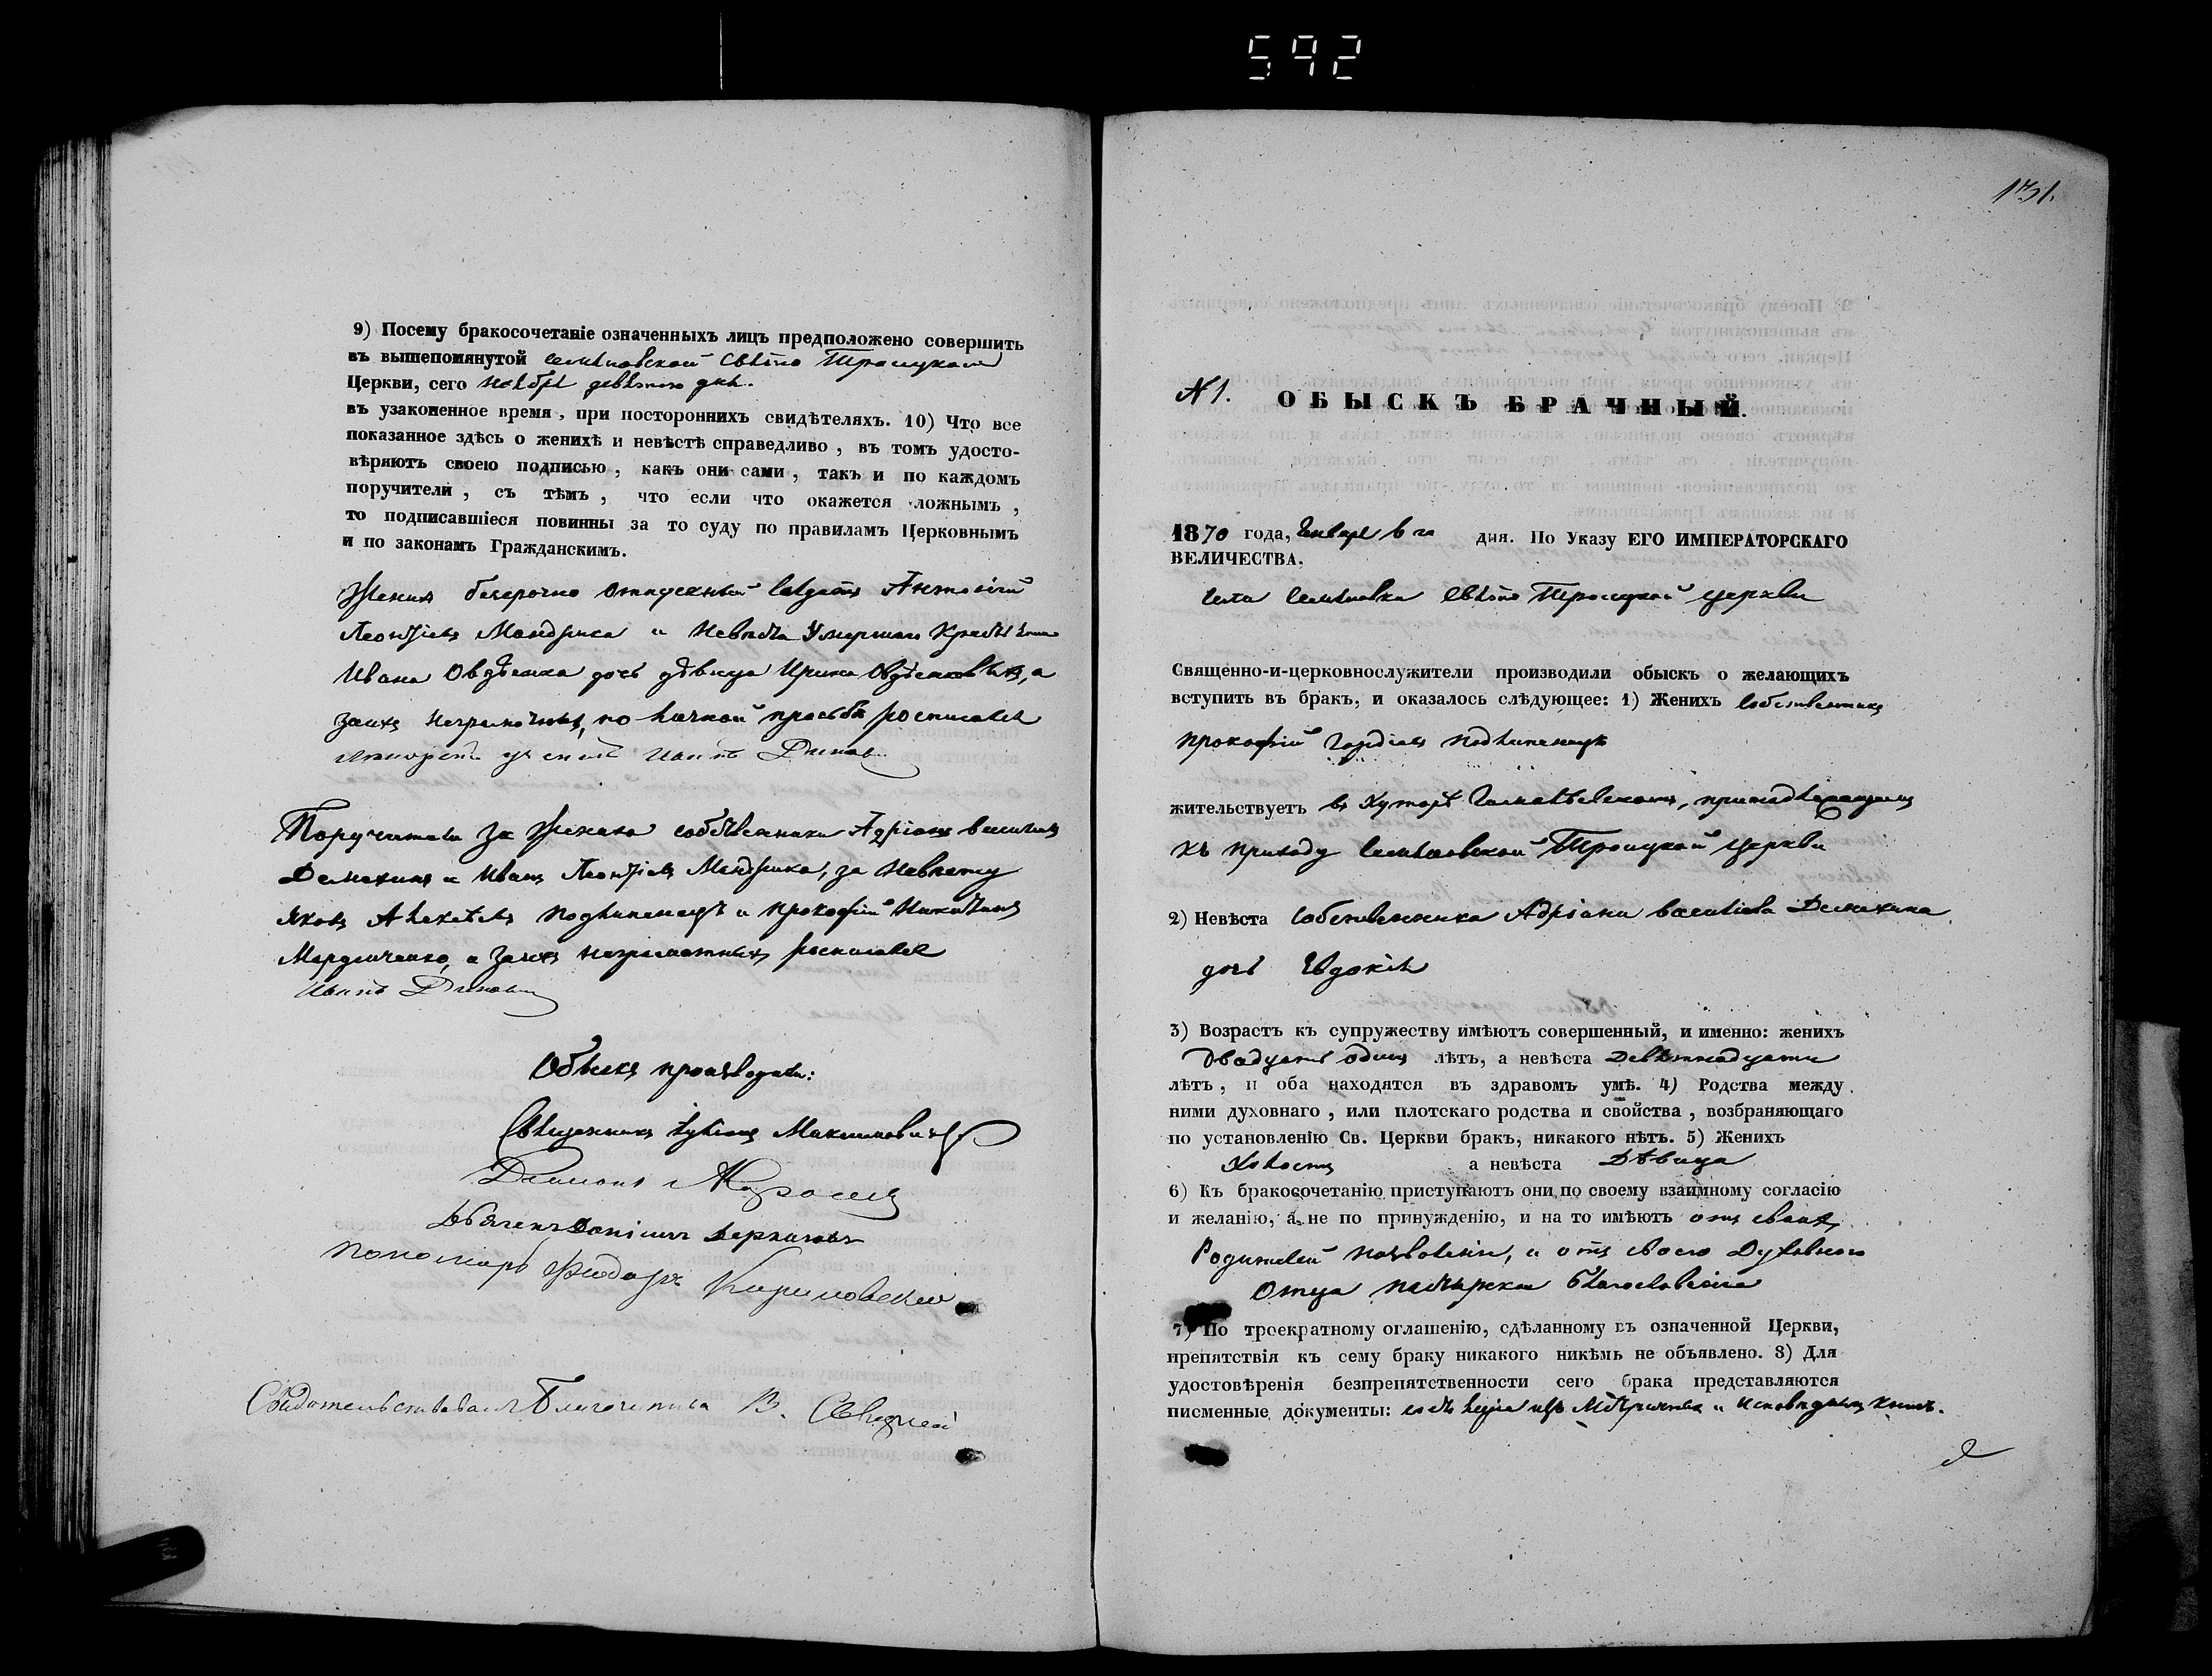 592
9) Посему бракосочетаніе означенныхъ лицъ предположено совершить
въ вышепомянутой Семяновской Свято Троицкой
Церкви, сего Ноября девятого дня.
въ узаконенное время, при постороннихъ свидѣтеляхъ. 10) Что все
показанное здѣсь о женихѣ и невѣстѣ справедливо, въ томъ удосто-
вѣряютъ своею подписью, какъ они сами, такъ и по каждомъ
поручители, съ тѣмъ, что если что окажется ложнымъ,
то подписавшіеся повинны за то суду по правиламъ Церковнымъ
и по законамъ Гражданскимъ.
Женихъ безсрочно отпускный Солдатъ Антоній
Леонтіевъ Мандрика и Невѣста Умершаго
Ивана Овдѣенка дочь дѣвица Ирина, а
за нихъ неграмотныхъ, по личной просьбѣ росписался
Иванъ
Поручители за Жениха собственники Адріанъ Василіевъ
Демехинъ и Иванъ Леонтіевъ Мандрика, за Невѣсту
Яковъ Алексѣевъ Подлипенецъ и Прокофій Никитинъ
а за нихъ неграмотныхъ росписался
Иванъ
Обыскъ производили:
Священникъ Максимовичъ
Діаконъ
Дьячекъ Даніилъ
Пономарь Федоръ
Свидѣтельствовалъ Благочинный В.
N 1. ОБЫСКЪ БРАЧНЫЙ.
1870 года, Января 6 го дня. По Указу ЕГО ИМПЕРАТОРСКАГО
ВЕЛИЧЕСТВА.
Села Семяновка Свято Троицкой церкви
Священно-и-церковнослужители производили обыскъ о желающихъ
вступить въ бракъ, и оказалось слѣдующее: 1) Женихъ собственникъ
Прокофій Гордіевъ Подлипенецъ
жительствуетъ въ Хуторѣ принадлежащемъ
къ приходу Семяновской Троицкой церкви
2) Невѣста собственника Адріана Василіева Демехина
дочь Евдокія
3) Возрастъ къ супружеству имѣютъ совершенный, и именно: женихъ
Двадцать одинъ лѣтъ, а невѣста Девятнадцати
лѣтъ, и оба находятся въ здравомъ умѣ. 4) Родства между
ними духовнаго, или плотскаго родства и свойства, возбраняющаго
по установленію Св. Церкви бракъ, никакого нѣтъ. 5) Женихъ
Холостъ а невѣста Дѣвица
6) Къ бракосочетанію приступаютъ они по своему взаимному согласію
и желанію, а не по принужденію, и на то имѣютъ отъ своихъ
Родителей позволеніе, и отъ своего Духовнаго
Отца пастырское благословеніе
7) По троекратному оглашенію, сдѣланному въ означенной Церкви,
препятствія къ сему браку никакого никѣмъ не объявлено. 8) Для
удостовѣренія безпрепятственности сего брака представляются
писменные документы: свѣдѣнія изъ Метричныхъ и исповѣдныхъ книгъ.